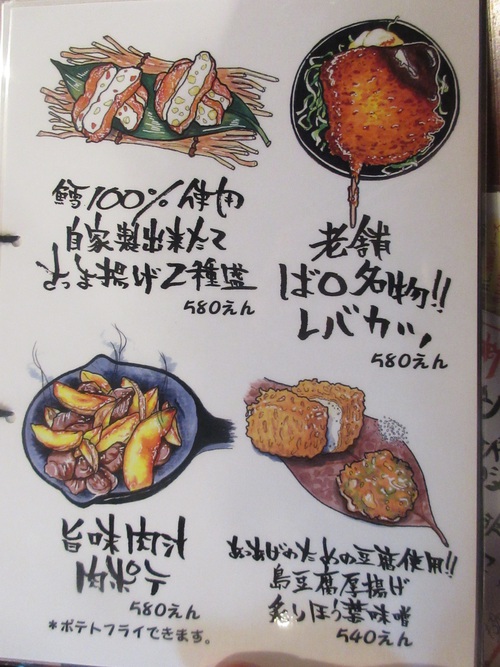 鱈100%使用
自家製出来たて
さつま揚げ2種盛
580えん
老舗
ばの名物!!
レバカツ
580えん
旨味肉汁
肉ポテ
580えん
*ポテトフライできます。
の豆腐使用!!
島豆腐厚揚げ
炙りほう葉味噌
540えん